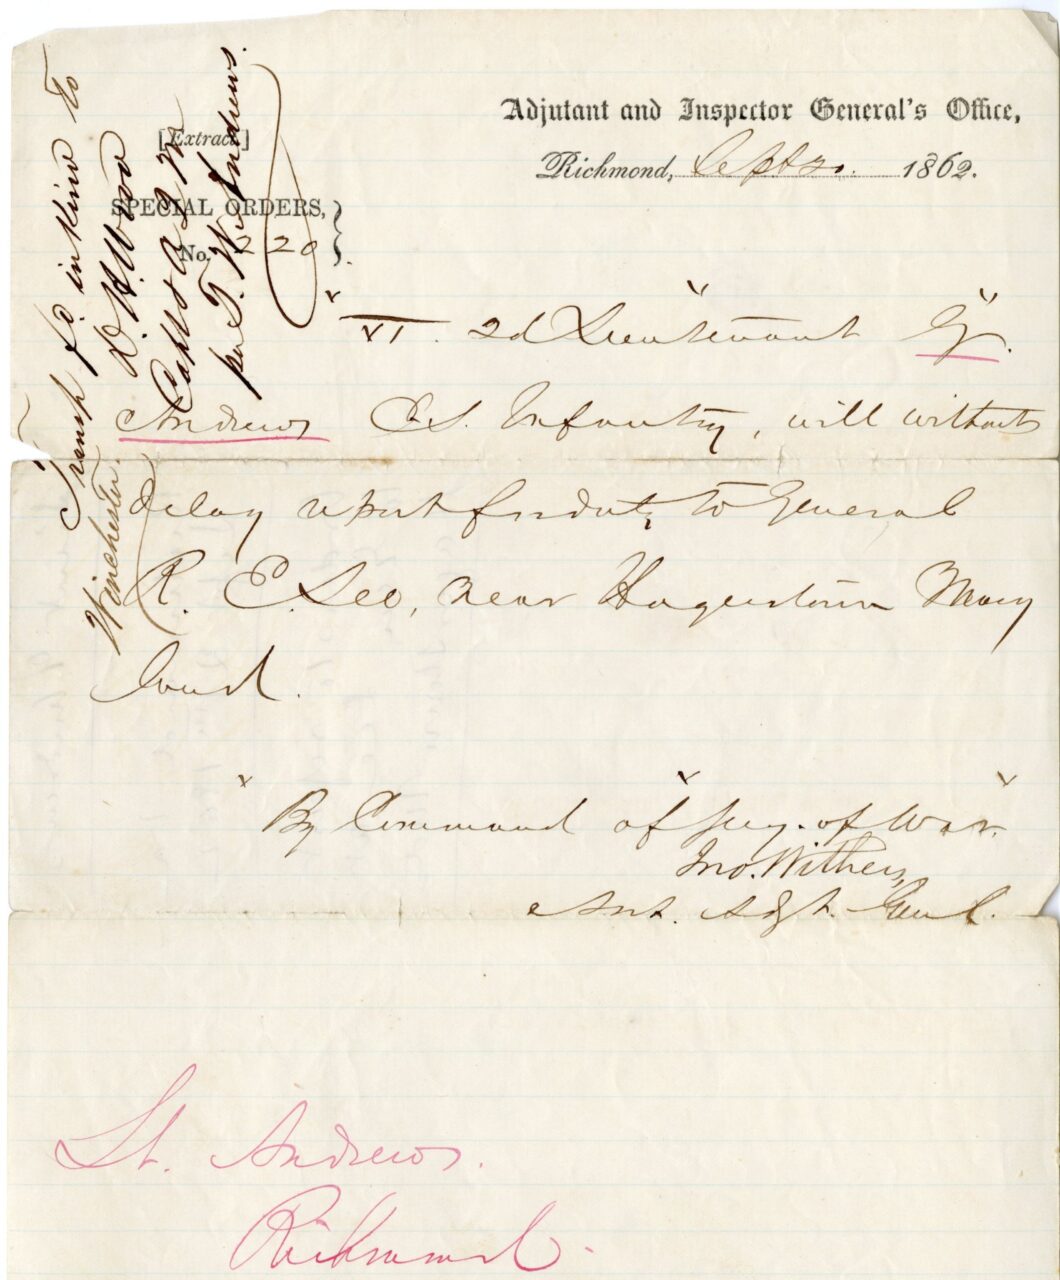 Adjutant and Inspector General's Office,
Richmond, Sept 20. 1862.
[Extract]
SPECIAL ORDERS,
No. 220
" XI. " 2d Lieutenant G. "
Andrews C.S. Infantry, will without
delay report for duty to General
R. E. Lee, near Hagerstown Mary
land.
" " "
By Command of Secy. of War.
Jno. Withers,
Asst. Adjt. Genl.
Lt. Andrews.
Richmond.
Transp fd in kind to
Winchester.
D. H. Wood
Capt & A Q M
per T. W. Andrews.